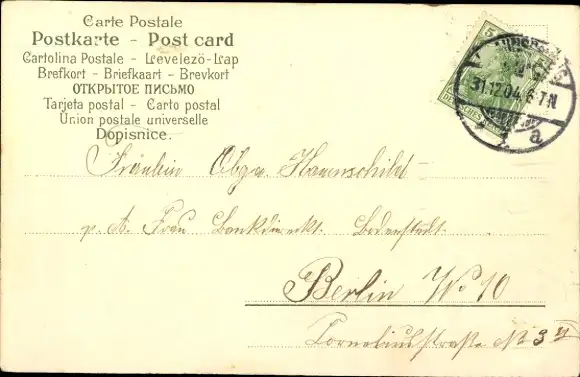 Carte Postale
Postkarte - Post card
Cartolina Postale - Levelezö-Lap
Brefkort - Briefkaart - Brevkort
ОТКРЫТОЕ ПИСЬМО
Tarjeta postal - Carto postal
Union postale universelle
Dopisnice.
5
DEUTSCHES REICH
31.12.04. 6-7N
a
Fräulein Olga Hauenschild
p. A. Frau Bankdirekt. Bodenstedt
Berlin W. 10
Corneliusstraße No 3